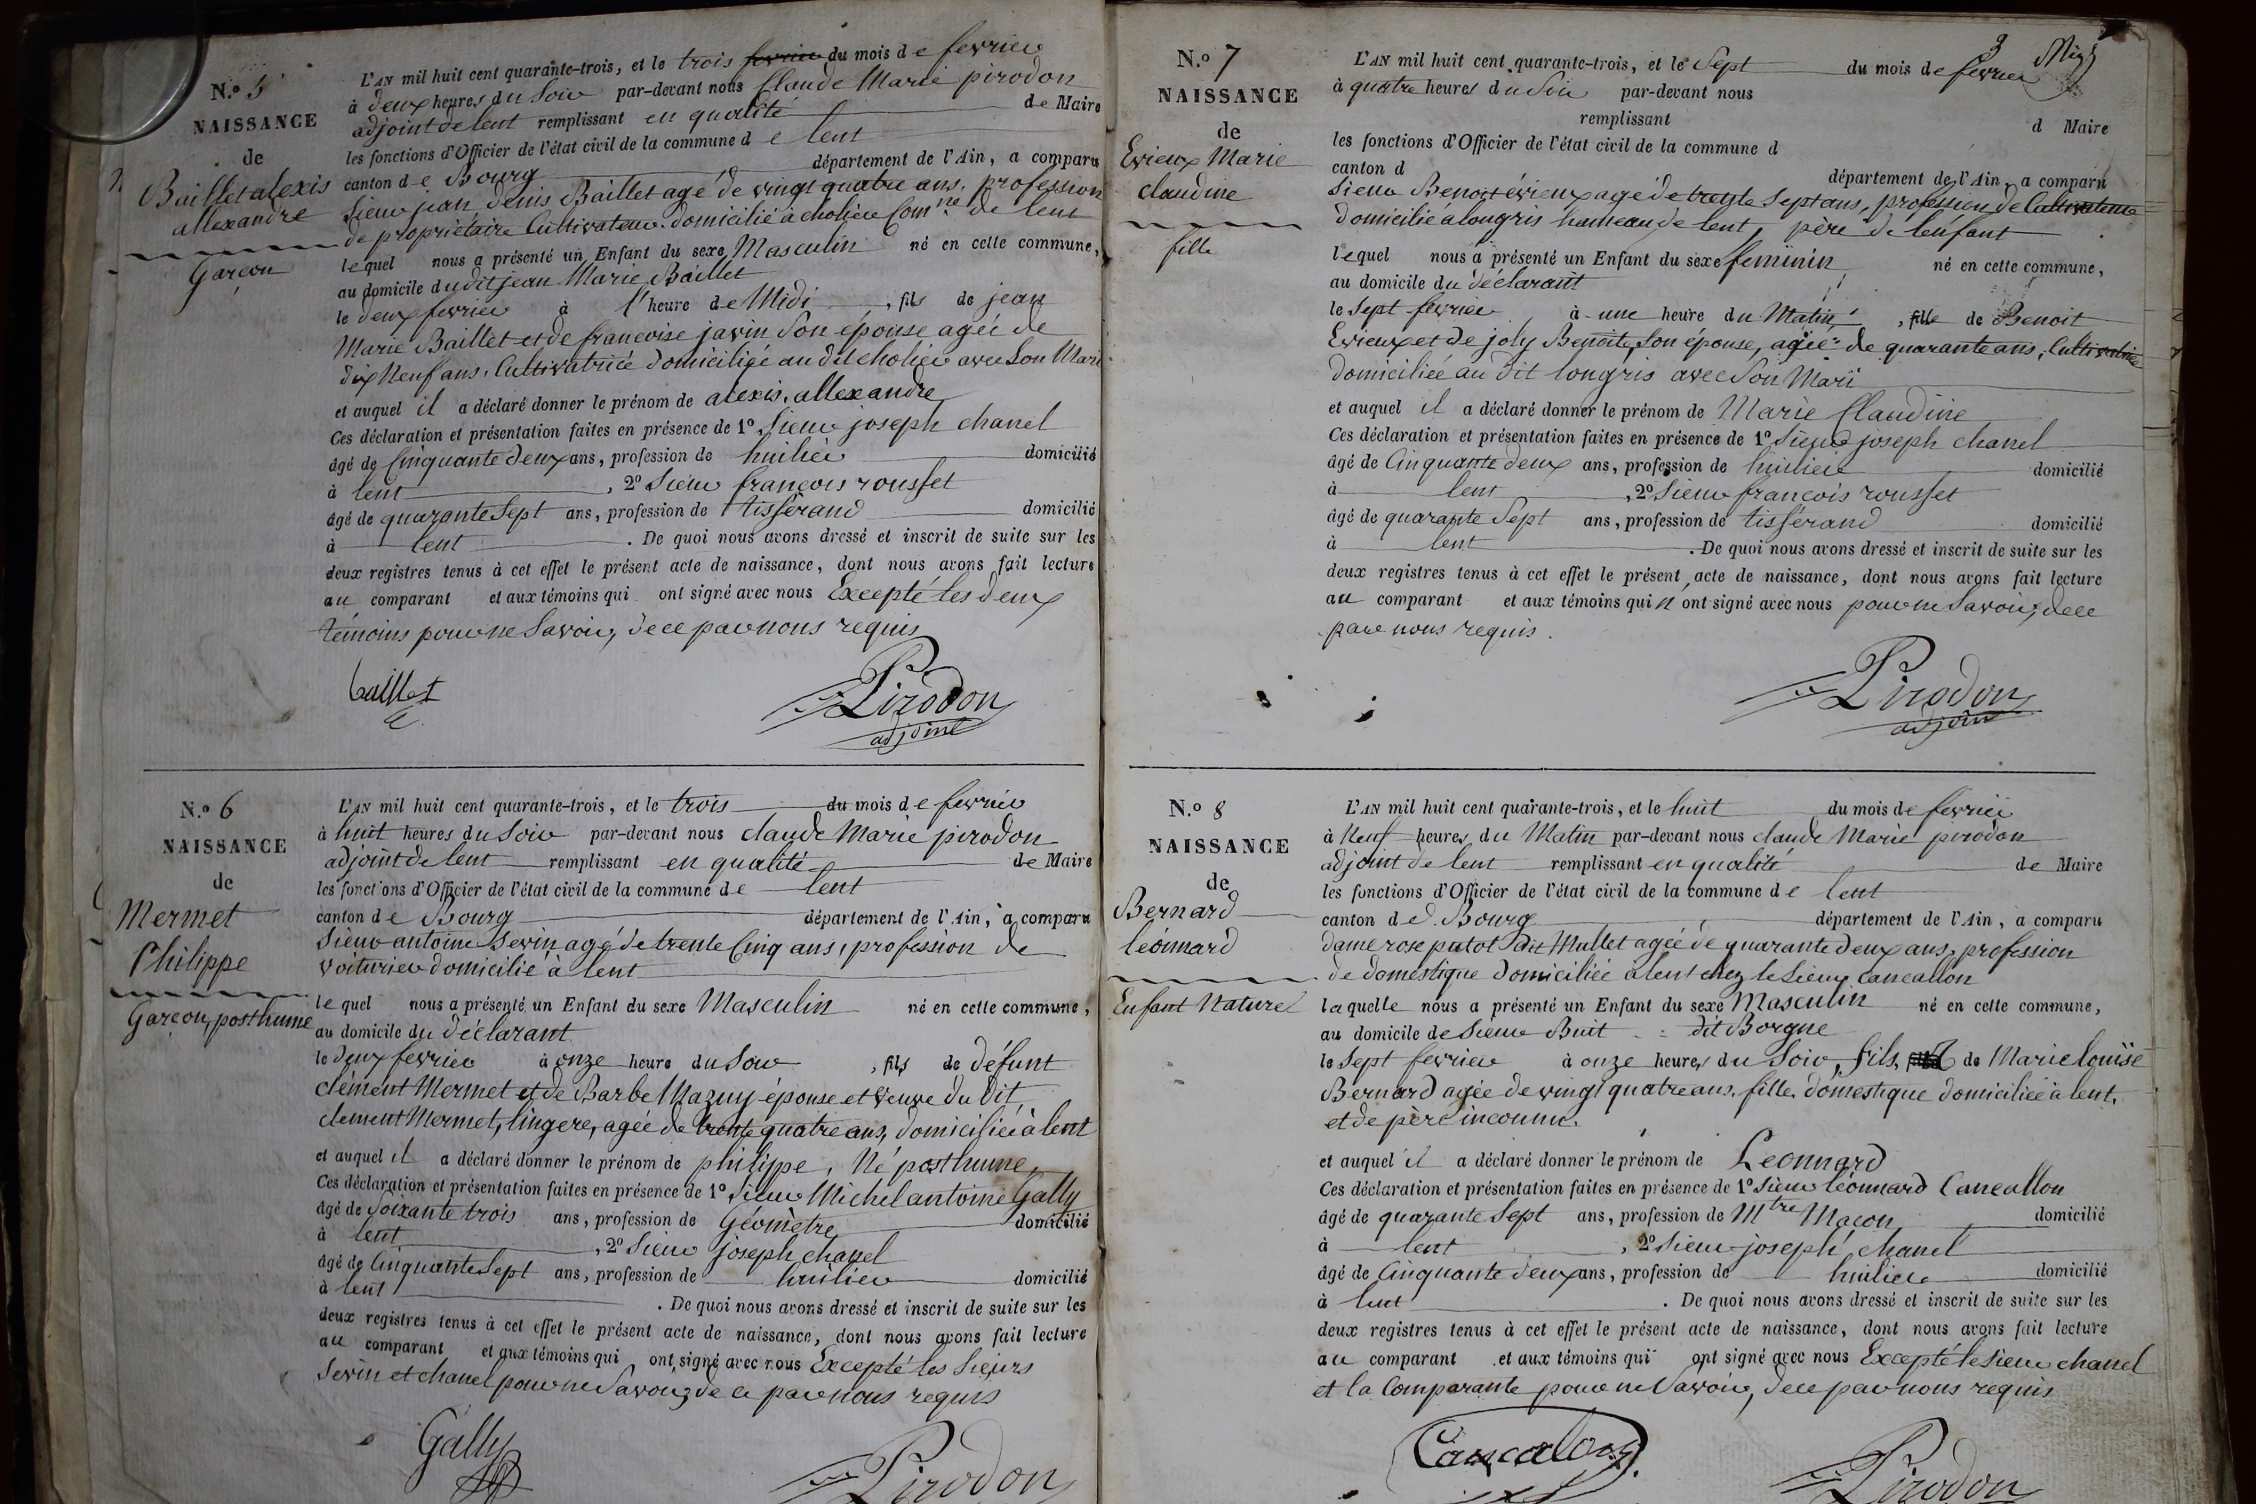 N.o 5
NAISSANCE
de
Baillet alexis
allexandre
Garçon
L'AN mil huit cent quarante-trois, et le trois fevrier du mois de fevrier
à deux heures du Soir par-devant nous Claude Marie pirodon
adjoint de lent remplissant en qualité de Maire
les fonctions d'Officier de l'état civil de la commune de lent
canton de Bourg département de l'Ain, a comparu
Sieur jean denis Baillet agé de vingt quatre ans, profession
de propriétaire Cultivateur domicilié à cholier Com.ne de lent
lequel nous a présenté un Enfant du sexe Masculin né en cette commune,
au domicile du dit jean Marie Baillet
le deux fevrier à l'heure de Midi, fils de jean
Marie Baillet et de francoise javin Son épouse agée de
dix Neuf ans, Cultivatrice domiciliée au dit cholier avec Son Mari
et auquel il a déclaré donner le prénom de alexis, allexandre
Ces déclaration et présentation faites en présence de 1o Sieur joseph chanel
âgé de Cinquante deux ans, profession de huilier domicilié
à lent, 2o Sieur françois rousset
âgé de quarante Sept ans, profession de tissérand domicilié
à lent. De quoi nous avons dressé et inscrit de suite sur les
deux registres tenus à cet effet le présent acte de naissance, dont nous avons fait lecture
au comparant et aux témoins qui ont signé avec nous Excepté les deux
témoins pour ne Savoir, de ce par nous requis
baillet
Pirodon
adjoint
N.o 6
NAISSANCE
de
Mermet
Philippe
Garçon, posthume
L'AN mil huit cent quarante-trois, et le trois du mois de fevrier
à huit heures du Soir par-devant nous claude Marie pirodon
adjoint de lent remplissant en qualité de Maire
les fonctions d'Officier de l'état civil de la commune de lent
canton de Bourg département de l'Ain, a comparu
Sieur antoine Sevin agé de trente Cinq ans, profession de
voiturier domicilié à lent
lequel nous a présenté un Enfant du sexe Masculin né en cette commune,
au domicile du déclarant
le deux fevrier à onze heure du Soir, fils de défunt
clément Mermet et de Barbe Mazuy épouse et veuve du dit
clement Mermet, lingere, agée de trente quatre ans, domiciliée à lent
et auquel il a déclaré donner le prénom de philippe, Né posthume,
Ces déclaration et présentation faites en présence de 1o Sieur Michel antoine Gally
âgé de Soixante trois ans, profession de Géomètre domicilié
à lent, 2o Sieur joseph chanel
âgé de Cinquante Sept ans, profession de huilier domicilié
à lent. De quoi nous avons dressé et inscrit de suite sur les
deux registres tenus à cet effet le présent acte de naissance, dont nous avons fait lecture
au comparant et aux témoins qui ont signé avec nous Excepté les Sieurs
Sevin et chanel pour ne Savoir, de ce par nous requis
Gally
Pirodon
3
N.o 7
NAISSANCE
de
Evieux Marie
claudine
fille
L'AN mil huit cent quarante-trois, et le Sept du mois de fevrier
à quatre heures du Soir par-devant nous
remplissant d Maire
les fonctions d'Officier de l'état civil de la commune d
canton d département de l'Ain, a comparu
Sieur Benoit évieux agé de trente Sept ans, profession de Cultivateur
domicilié à longris hameau de lent, père de l'énfant
lequel nous a présenté un Enfant du sexe feminin né en cette commune,
au domicile du déclarant
le Sept fevrier à une heure du Matin, fille de Benoit
Evieux et de joly Benoite, Son épouse, agée de quarante ans, Cultivatrice
domiciliée au dit longris avec Son Mari
et auquel il a déclaré donner le prénom de Marie Claudine
Ces déclaration et présentation faites en présence de 1o Sieur joseph chanel
âgé de Cinquante deux ans, profession de huilier domicilié
à lent, 2o Sieur françois rousset
âgé de quarante Sept ans, profession de tissérand domicilié
à lent. De quoi nous avons dressé et inscrit de suite sur les
deux registres tenus à cet effet le présent acte de naissance, dont nous avons fait lecture
au comparant et aux témoins qui n'ont signé avec nous pour ne Savoir, de ce
par nous requis.
Pirodon
adjoint
N.o 8
NAISSANCE
de
Bernard
léonnard
Enfant Naturel
L'AN mil huit cent quarante-trois, et le huit du mois de fevrier
à Neuf heures du Matin par-devant nous claude Marie pirodon
adjoint de lent remplissant en qualité de Maire
les fonctions d'Officier de l'état civil de la commune de lent
canton de Bourg département de l'Ain, a comparu
dame rose putot dit Mullet agée de quarante deux ans, profession
de domestique domiciliée à lent chez le Sieur Cancallon
laquelle nous a présenté un Enfant du sexe Masculin né en cette commune,
au domicile de Sieur Buit dit Borgne
le Sept fevrier à onze heures du Soir, fils, de Marie louise
Bernard agée de vingt quatre ans, fille, domestique domiciliée à lent,
et de père inconnu.
et auquel il a déclaré donner le prénom de Leonnard
Ces déclaration et présentation faites en présence de 1o Sieur léonnard Cancallon
âgé de quarante Sept ans, profession de Mtre Maçon domicilié
à lent, 2o Sieur joseph chanel
âgé de Cinquante deux ans, profession de huilier domicilié
à lent. De quoi nous avons dressé et inscrit de suite sur les
deux registres tenus à cet effet le présent acte de naissance, dont nous avons fait lecture
au comparant et aux témoins qui ont signé avec nous Excepté le Sieur chanel
et la Comparante pour ne Savoir, de ce par nous requis
Cancalon
Pirodon